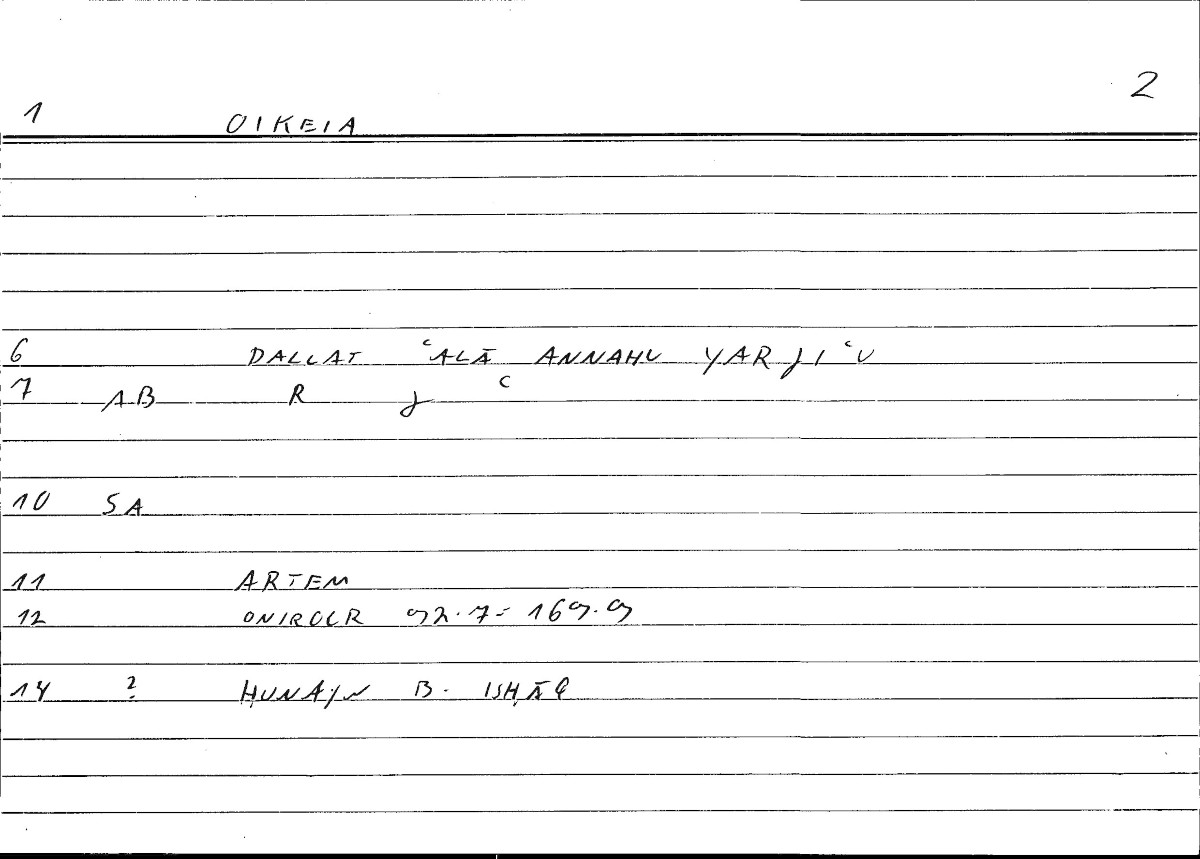 2
1 OIKEIA
6 DALLAT ʿALĀ ANNAHU YARJIʿU
7 AB R J ʿ
10 SA
11 ARTEM
12 ONIROCR 92.7 - 169.9
14 ? ḤUNAYN B. ISḤĀQ